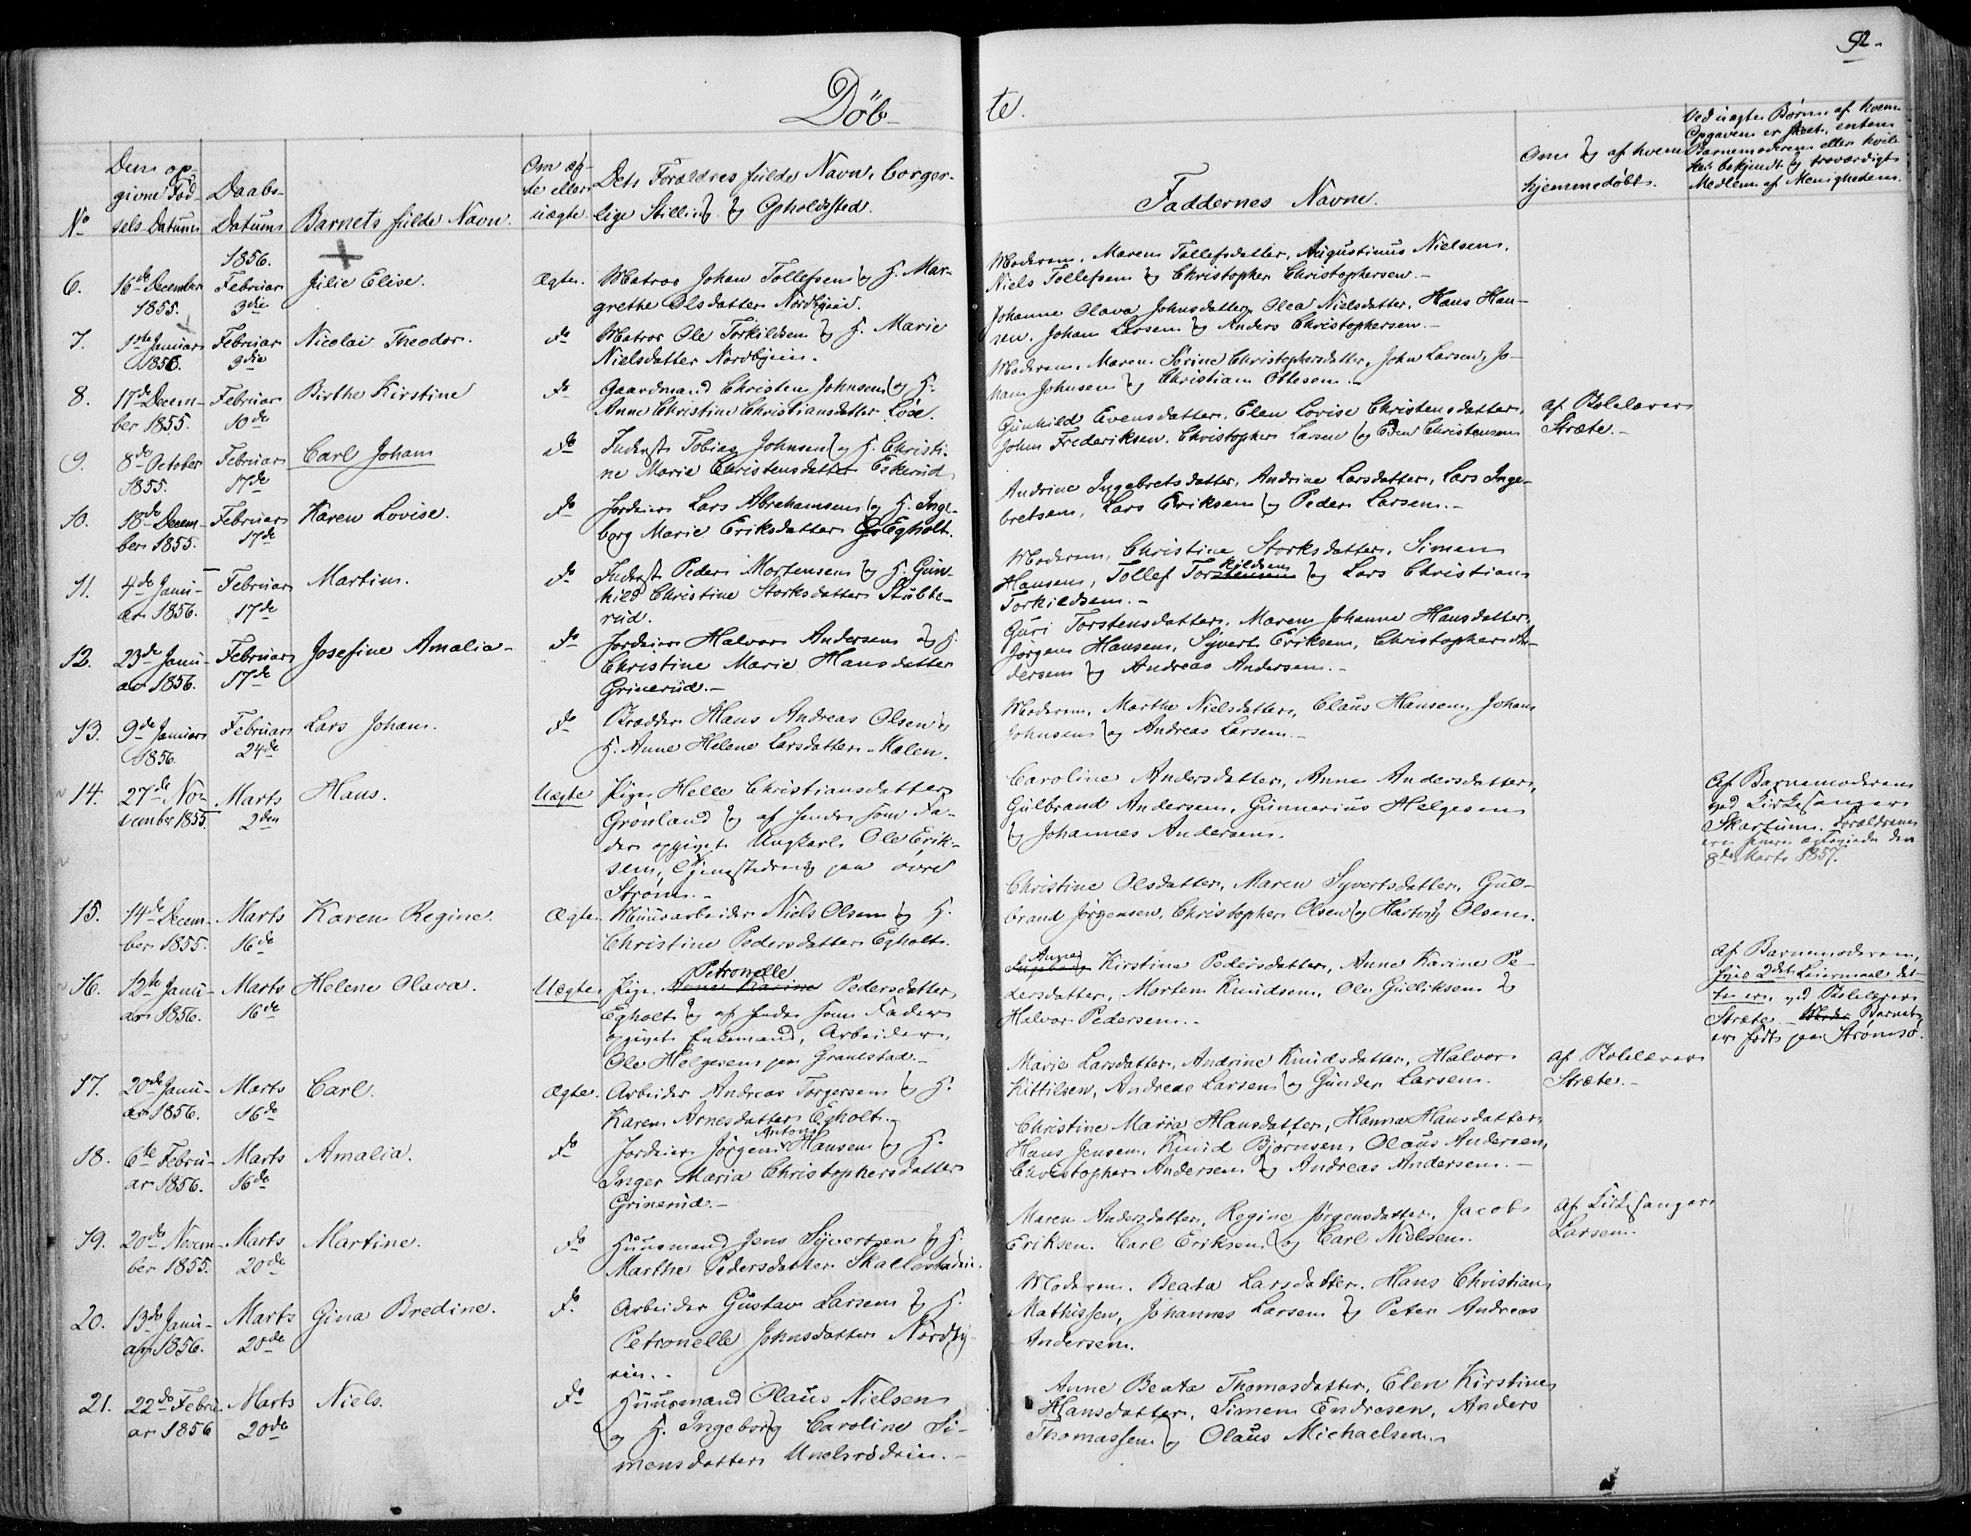 92.
Döb-
te.
No
Den op-
givne Föd-
sels Datum
Daabs-
Datum
Barnets fulde Navn.
Om æg-
te eller
uægte.
Dets Forældres fulde Navn, borger-
lige Stilling og Opholdssted.
Faddernes Navne.
Om og af hvem
hjemmedöbt.
Ved uægte Børn af hvem
Opgaven er skeet, enten
Barnemoderen eller hvil-
ket bekjendt og troværdigt
Medlem af Menigheden.
6.
16de December
1855.
1856.
Februar
3die
Julie Elise.
Ægte.
Matros Johan Tollefsen og H. Mar-
grethe Olsdatter Nordbyeie.
Moderen, Maren Tollefsdatter, Augustinus Nielsen,
Niels Tollefsen og Christopher Christophersen.-
7.
1ste Januar
1856.
Februar
3die
Nicolai Theodor.
do
Matros Ole Torkildsen og H. Marie
Nielsdatter Nordbyeie.
Johanne Olava Johnsdatter, Olea Nielsdatter, Hans Han-
sen, Johan Larsen og Anders Christophersen.-
8.
17de Decem-
ber 1855.
Februar
10de
Birthe Kirstine
do
Gaardmand Christen Johnsen og H.
Anne Christine Christiansdatter Löse.
Moderen, Maren Sørine Christophersdatter, John Larsen, Jo-
han Johnsen og Christian Ottesen.-
9.
8de October
1855.
Februar
17de
Carl Johan
do
Inderst Tobias Johnsen og H. Christi-
ne Marie Christensdatter Eskerud
Gunhild Evensdatter, Elen Lovise Christensdatter,
John Frederiksen, Christopher Larsen og Even Christensen
af Skolelærer
Stræte.-
10.
18de Decem-
ber 1855.
Februar
17de
Karen Lovise.
do
Jordeier Lars Abrahamsen og H. Inge-
borg Marie Eriksdatter Egholt.
Andrine Ingebretsdatter, Andrine Larsdatter, Lars Inge-
bretsen, Lars Eriksen og Peder Larsen.-
11.
4de Janu-
ar 1856.
Februar
17de
Martin.
do
Inderst Peder Mortensen og H. Gun-
hild Christine Storksdatter Stubbe-
rud.
Moderen, Christine Storksdatter, Simen
Hansen, Tollef Torkildsen og Lars Christian
Torkildsen.-
12.
23de Janu-
ar 1856.
Februar
17de
Josefine Amalia-
do
Jordeier Halvor Andersen og H.
Christine Marie Hansdatter
Grinerud.-
Guri Torstensdatter, Maren Johanne Hansdatter,
Jørgen Hansen, Syvert Eriksen, Christopher An-
dersen og Andreas Andersen.-
13.
9de Januar
1856.
Februar
24de
Lars Johan.
do
Brödder Hans Andreas Olsen og
H. Anne Helene Larsdatter. Malen.
Moderen, Marthe Nielsdatter, Claus Hansen, Johan
Johnsen og Andreas Larsen.-
14.
27de No-
vember 1855.
Marts
2den
Hans.
Uægte
Pige Helle Christiansdatter
Grönland og af hende som Fa-
der opgivet Ungkarl Ole Erik-
sen, tjenestedreng paa övre
Ström.-
Caroline Andersdatter, Anne Andersdatter,
Gulbrand Andersen, Gunnerius Helgesen
og Johannes Andersen.
Af Barnemoderen
ved Kirkesanger
Skartum. Forældrene
ere senere ægteviede den
8de Marts 1857.
15.
14de Decem-
ber 1855.
Marts
16de
Karen Regine.
Ægte.
Muusarbeider Niels Olsen og H.
Christine Pedersdatter Egholt.
Christine Olsdatter, Maren Syvertsdatter, Gul-
brand Jørgensen, Christopher Olsen og Hartvig Olsen.
16.
12te Janu-
ar 1856.
Marts
16de
Helene Olava.
Uægte
Petronelle
Pige Anne Karine Pedersdatter
Egholt og af hende som Fader
opgivet Enkemand, Arbeider,
Ole Helgesen paa Gravlstad.-
Anne
Ingeborg Kirstine Pedersdatter, Anne Karine Pe-
dersdatter, Morten Knudsen, Ole Gulliksen og
Halvor Pedersen.-
Af Barnemoderen,
hvis 2det Leiermaal det-
te er, ved Skolelærer
Stræte.- Moder Barnet
er födt paa Strömsö.
17.
20de Janu-
ar 1856.
Marts
16de
Carl.
Ægte.
Arbeider Andreas Torgersen og H.
Karen Arnesdatter Egholt.
Marie Larsdatter, Andrine Knudsdatter, Halvor
Kittilsen, Andreas Larsen og Gunder Larsen.
af Skolelærer
Stræte.-
18.
6te Febru-
ar 1856.
Marts
16de
Amalia.
do
Anton
Jordeier Jørgen Hansen og H.
Inger Maria Christophersdatter
Grinerud.-
Christine Maria Hansdatter, Hanna Hansdatter,
Hans Jensen, Knud Bjørnsen, Olaus Andersen,
Christopher Andersen og Andreas Andersen.-
19.
20de Novem-
ber 1855.
Marts
20de
Martine.
do
Huusmand Jens Syvertsen og H.
Marthe Pedersdatter Skallestadeie.
Maren Andersdatter, Regine Jørgensdatter, Jacob
Eriksen. Carl Eriksen og Carl Nielsen.
Af Kirkesanger
Larsen.
20.
13de Janu-
ar 1856.
Marts
20de
Gina Bredine.
do.
Arbeider Gustav Larsen og H.
Petronelle Johnsdatter Nordby-
eie.-
Moderen. Beata Larsdatter. Hans Christian
Mathissen, Johannes Larsen og Peter Andreas
Andersen.
21.
22de Febru-
ar 1856
Marts
20de
Niels.
do
Huusmand Olaus Nielsen
og H. Ingeborg Caroline Si-
mensdatter Unelsrödeie.-
Anne Beata Thomasdatter, Elen Kirstine
Hansdatter, Simen Endresen, Anders
Thomassen og Olaus Michaelsen.